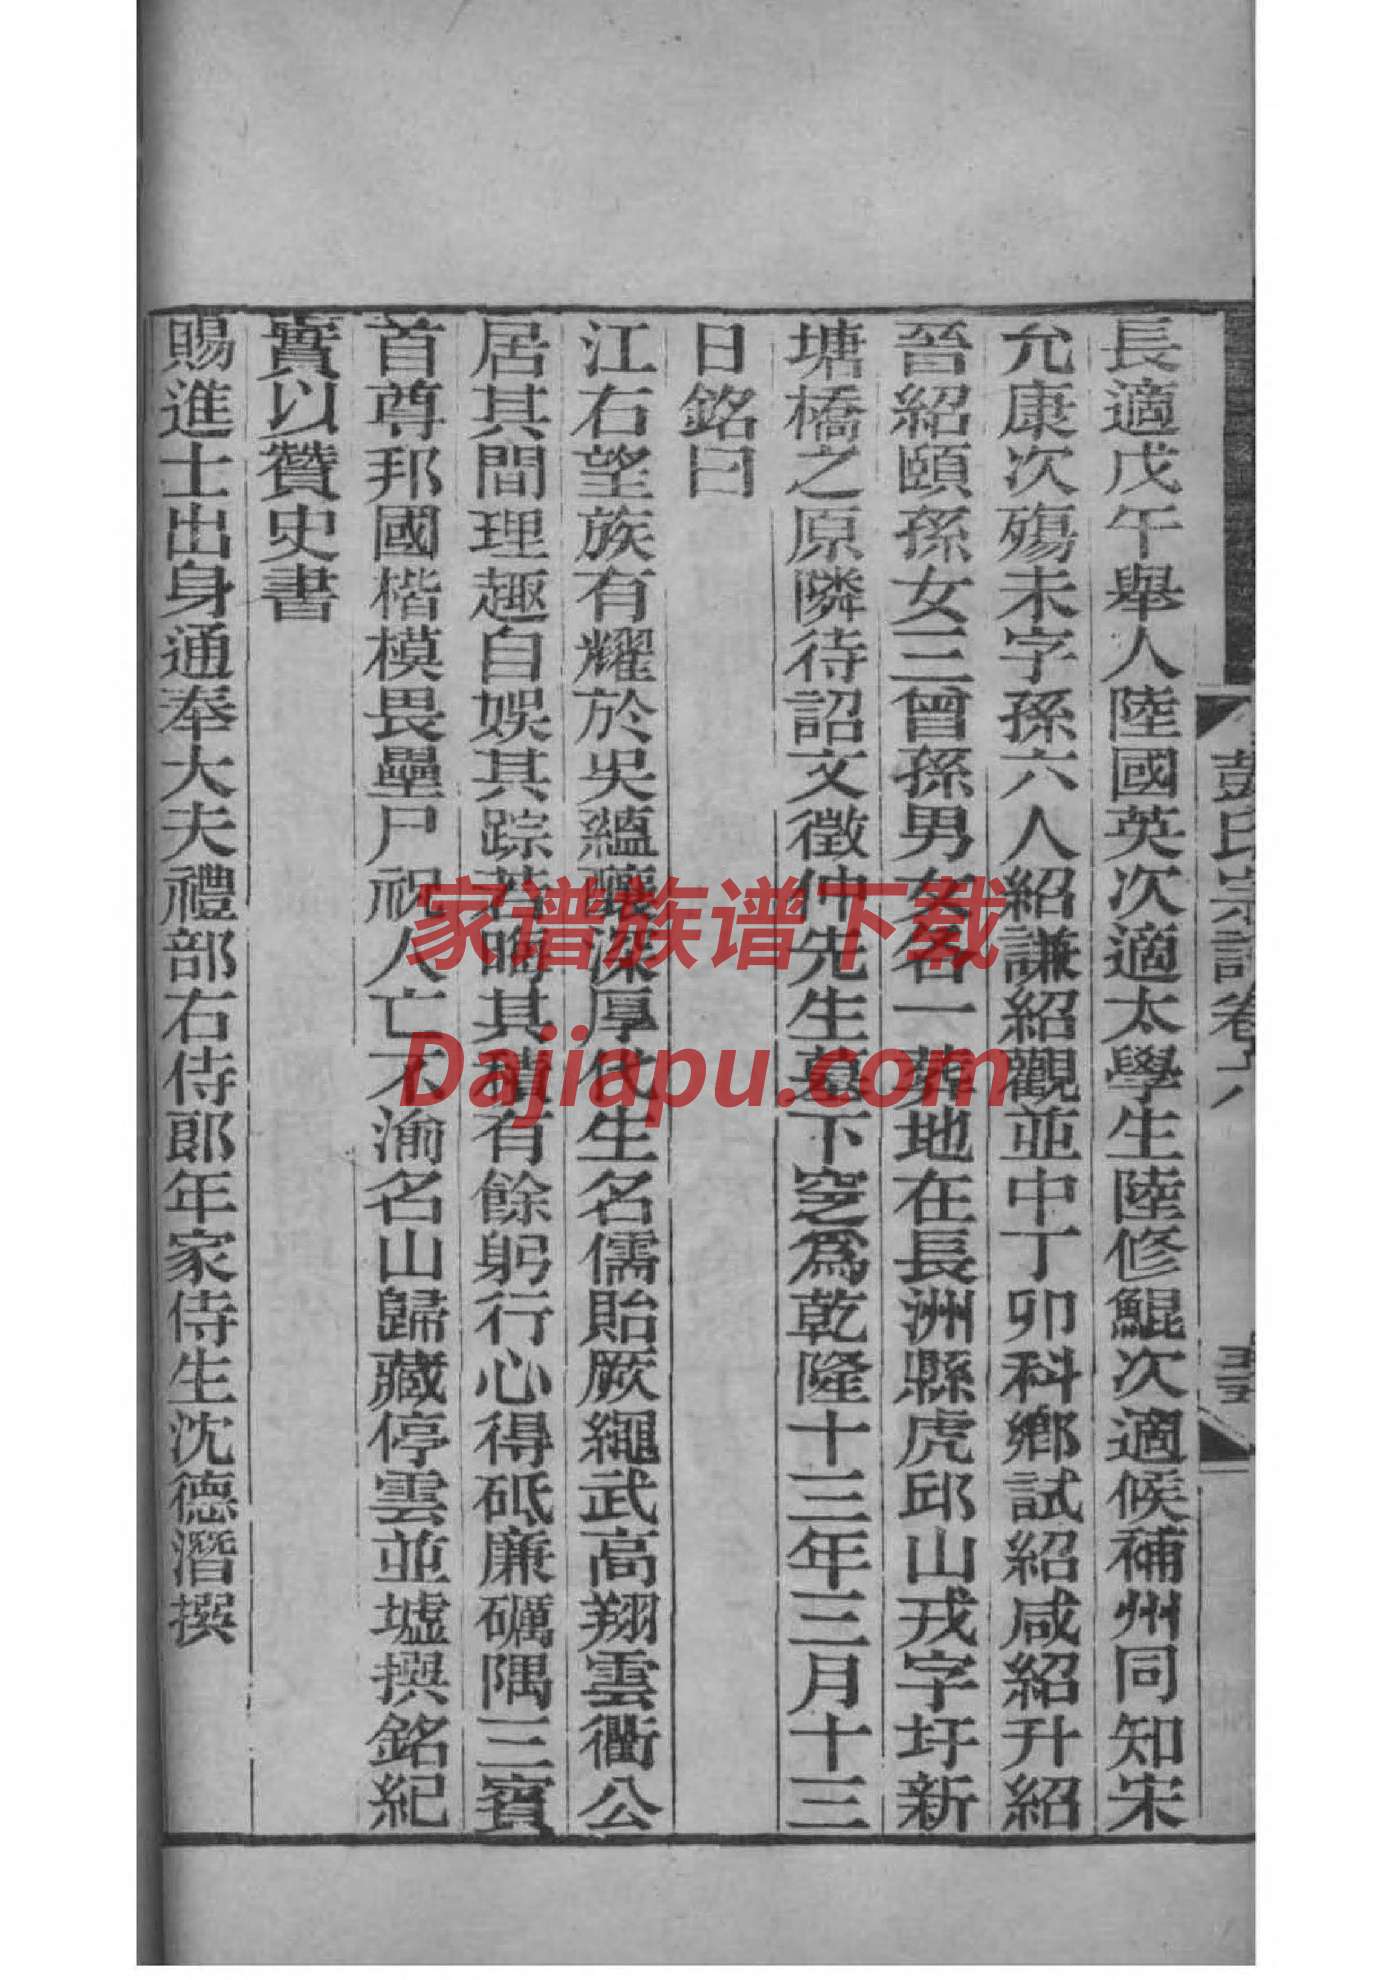 彭氏宗譜卷八
長適戊午舉人陸國英次適太學生陸修鯤次適候補州同知宋
允康次殤未字孫六人紹謙紹觀並中丁卯科鄉試紹咸紹升紹
晉紹頤孫女三曾孫男女各一葬地在長洲縣虎邱山戎字圩新
塘橋之原隣待詔文徵仲先生墓下窆爲乾隆十三年三月十三
日銘曰
江右望族有耀於吳蘊釀深厚代生名儒貽厥繩武高翔雲衢公
居其間理趣自娛其踪若晦其積有餘躬行心得砥廉礪隅三賓
首尊邦國楷模畏壘尸祝人亡不渝名山歸藏停雲並墟撰銘紀
實以贊史書
賜進士出身通奉大夫禮部右侍郎年家侍生沈德潛撰
家谱族谱下载
Dajiapu.com